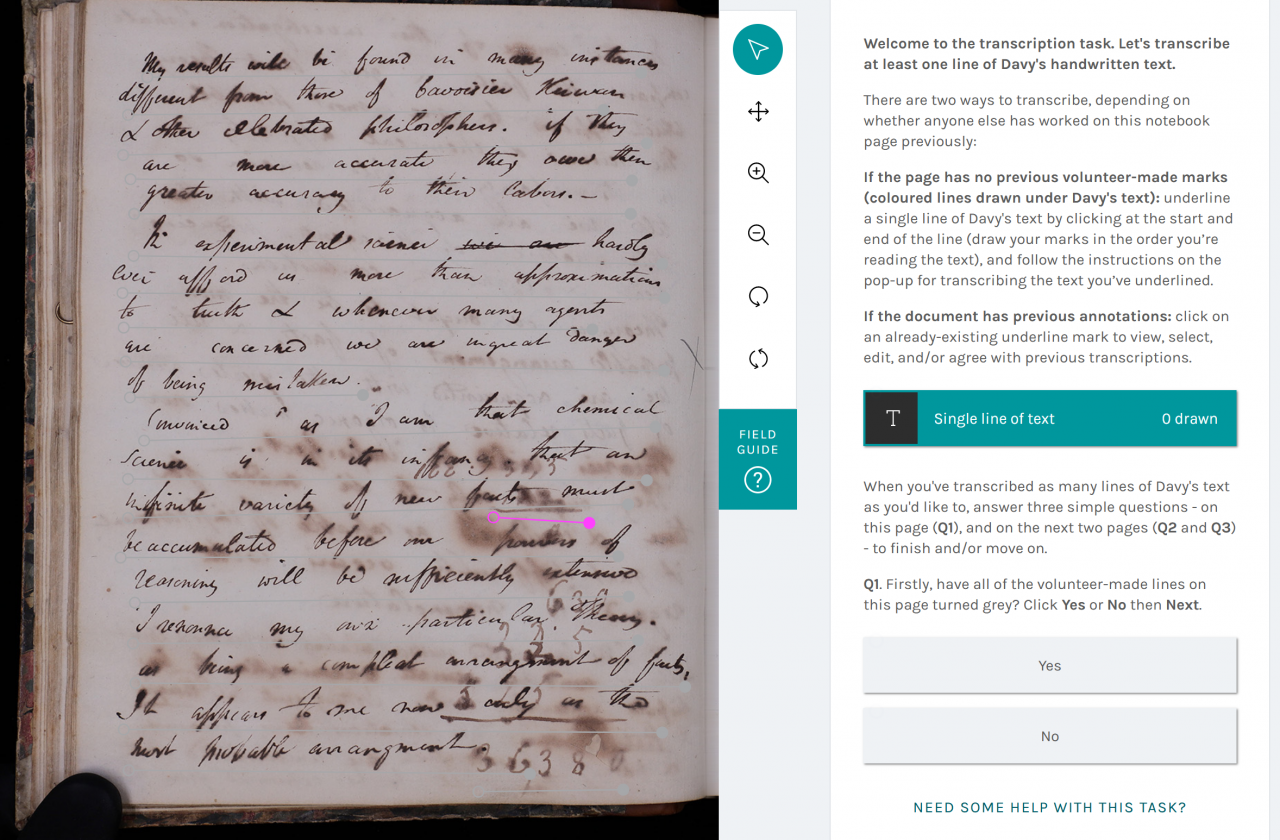 My results will be found in many instances
different from those of Lavoisier Kirwan
& other celebrated philosophers. if they
are more accurate they owe then
greater accuracy to their labors. –
In experimental science we are hardly
ever afford us more than approximations
to truth & whenever many agents
are concerned we are in great danger
of being mistaken.
Convinced as I am that chemical
science is in its infancy that an
infinite variety of new facts must
be accumulated before our powers of
reasoning will be sufficiently extensive
I renounce my own particular Theory.
as being a compleat arrangment of facts,
It appears to me now only as the
most probable arrangment.
3 6 3 8 0
Welcome to the transcription task. Let's transcribe
at least one line of Davy's handwritten text.
There are two ways to transcribe, depending on
whether anyone else has worked on this notebook
page previously:
If the page has no previous volunteer-made marks
(coloured lines drawn under Davy's text): underline
a single line of Davy's text by clicking at the start and
end of the line (draw your marks in the order you're
reading the text), and follow the instructions on the
pop-up for transcribing the text you've underlined.
If the document has previous annotations: click on
an already-existing underline mark to view, select,
edit, and/or agree with previous transcriptions.
T Single line of text 0 drawn
FIELD
GUIDE
?
When you've transcribed as many lines of Davy's text
as you'd like to, answer three simple questions - on
this page (Q1), and on the next two pages (Q2 and Q3)
- to finish and/or move on.
Q1. Firstly, have all of the volunteer-made lines on
this page turned grey? Click Yes or No then Next.
Yes
No
NEED SOME HELP WITH THIS TASK?